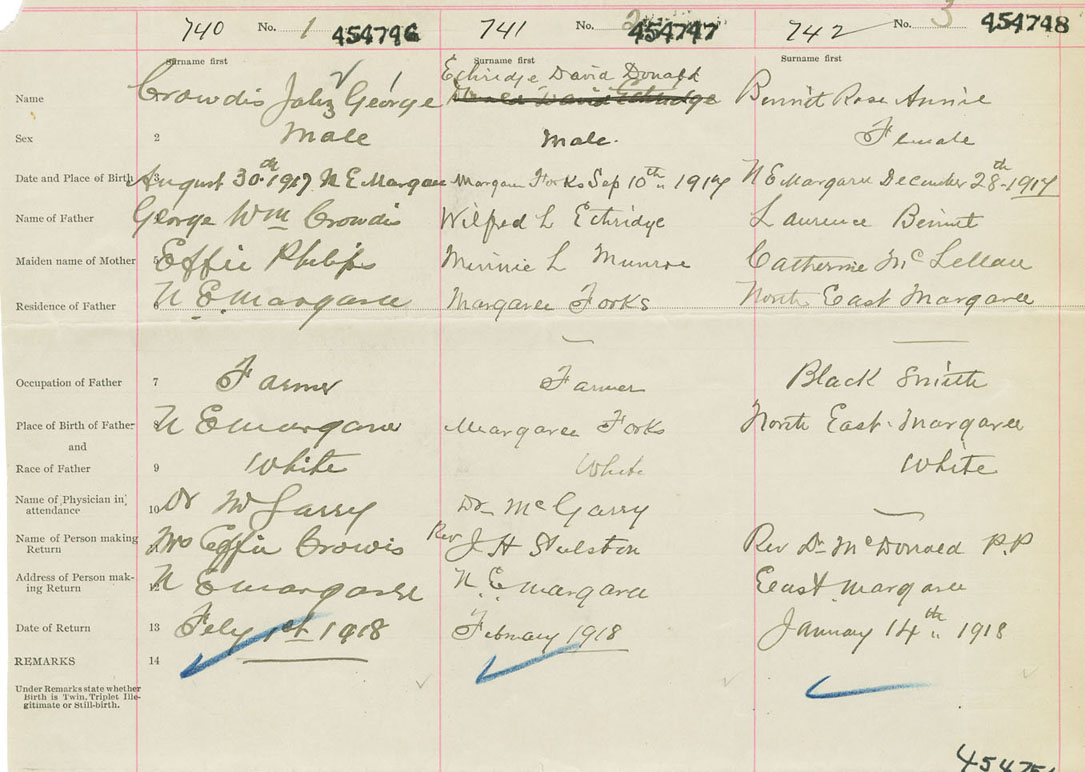 740 No. 1 454746 741 No. 2 454747 742 No. 3 454748
Surname first Surname first Surname first
Ethridge David Donald
Name Crowdis John George Donald David Ethridge Bennit Rose Annie
Sex 2 Male Male. Female
Date and Place of Birth 3 August 30th 1917 N E Margaree Margaree Forks Sep 10th 1917 N E Margaree December 28th 1917
Name of Father George Wm Crowdis Wilfred L Ethridge Laurence Bennit
Maiden name of Mother 5 Effie Philips Minnie L Munroe Catherine McLellan
Residence of Father 6 N. E. Margaree Margaree Forks North East Margaree
Occupation of Father 7 Farmer Farmer Black Smith
Place of Birth of Father 8 N E Margaree Margaree Forks North East Margaree
and
Race of Father 9 White White White
Name of Physician in
attendance 10 Dr McGarry Dr McGarry
Name of Person making
Return Mrs Effie Crowis Rev J H Rev Dr McDonald P.P
Address of Person mak-
ing Return 12 N E Margaree N. E. Margaree East Margaree
Date of Return 13 Feby 1st 1918 February 1918 January 14th 1918
REMARKS 14
Under Remarks state whether
Birth is Twin, Triplet Ille-
gitimate or Still-birth.